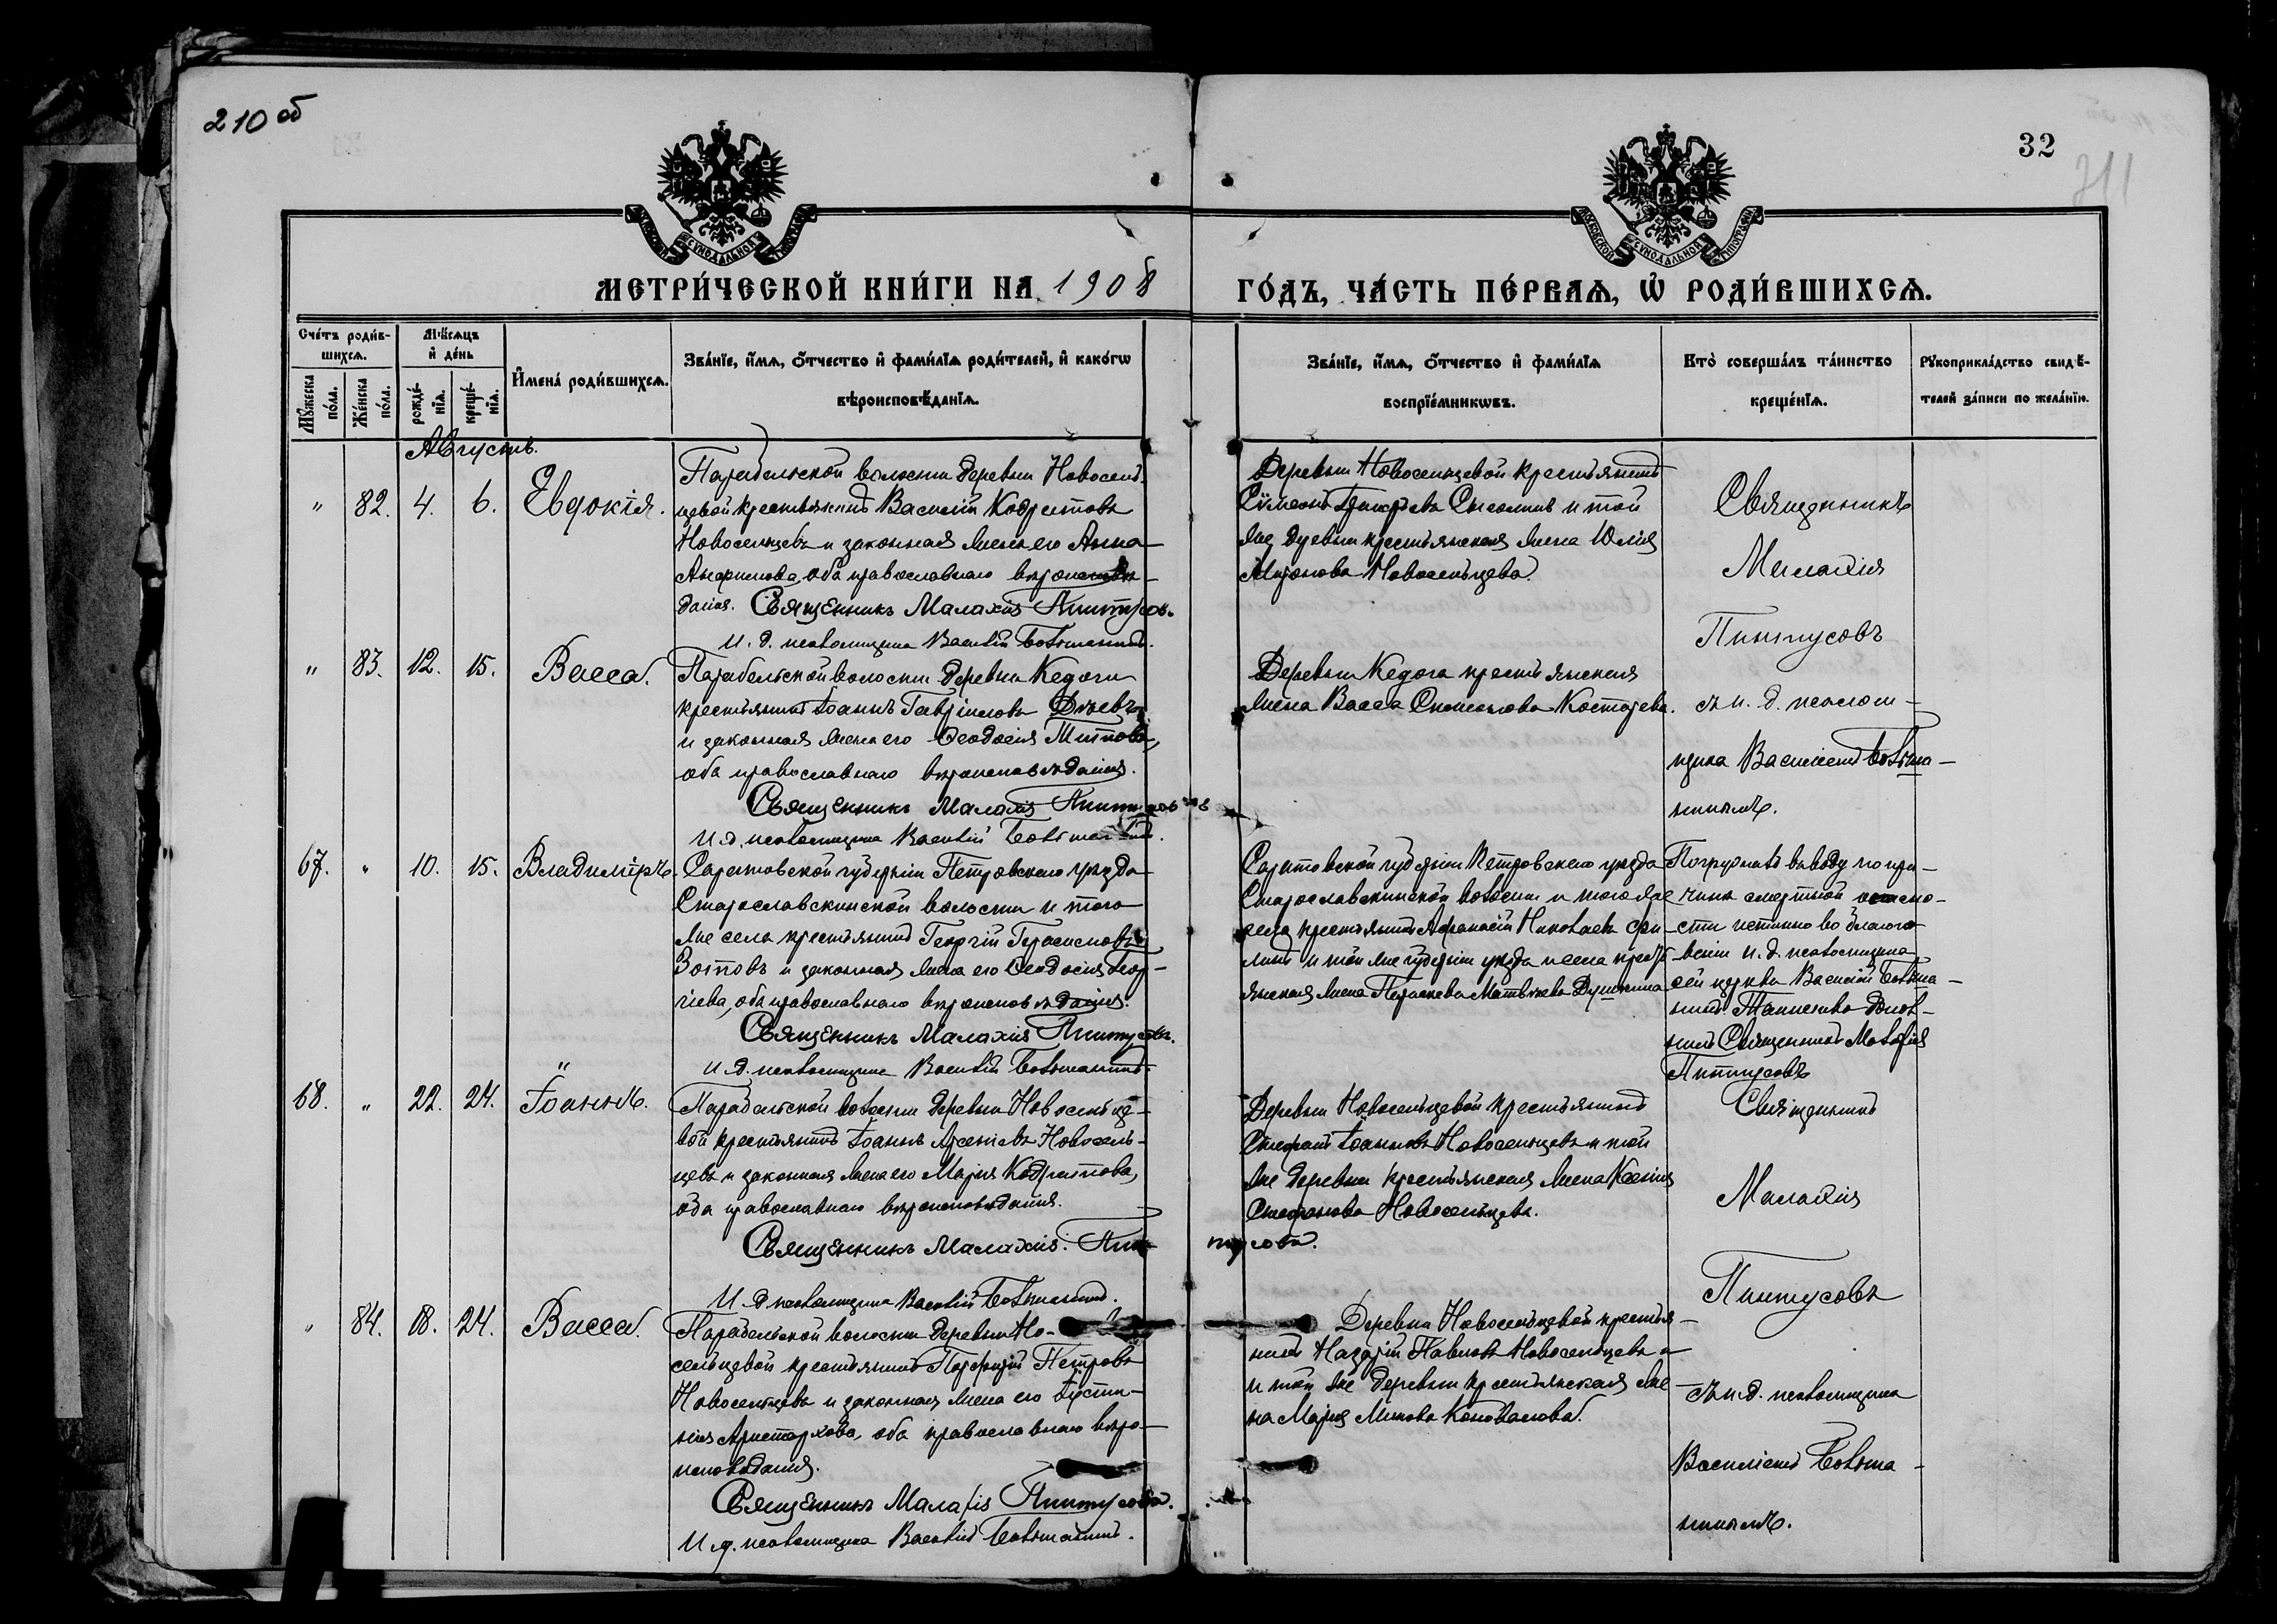 210 об
32
211
МОСКОВСКОЙ СѴНОДАЛЬНОЙ ТИПОГРАФІИ
МОСКОВСКОЙ СѴНОДАЛЬНОЙ ТИПОГРАФІИ
МЕТРИ́ЧЕСКОЙ КНИ́ГИ НА 1908
ГО́ДЪ, ЧА́СТЬ ПЕ́РВАѦ, Ѡ҆ РОДИ́ВШИХСѦ.
Сче́тъ роди́в-
шихсѧ.
Мꙋ́жеска
по́ла.
Же́нска
по́ла.
Мѣ́сѧцъ
и҆ де́нь
рожде́-
нїѧ.
креще́-
нїѧ.
И҆мена̀ роди́вшихсѧ.
Зва́нїе, и҆́мѧ, ѻ҆́тчество и҆ фами́лїѧ роди́телей, и҆ како́гѡ
вѣроисповѣ́данїѧ.
Зва́нїе, и҆́мѧ, ѻ҆́тчество и҆ фами́лїѧ
воспрїе́мникѡвъ.
Кто̀ соверша́лъ та́инство
креще́нїѧ.
Рꙋкоприкла́дство свидѣ́-
телей за́писи по жела́нїю.
Августъ.
" 82. 4. 6. Евдокія.
Парабельской волости деревни Новосель-
цевой крестьянинъ Василій Кодратовъ
Новосельцевъ и законная жена его Анна
оба православнаго вѣроисповѣ-
данія. Священникъ Малахія Пинтусовъ.
И. д. псаломщика Василій
Деревни Новосельцевой крестьянинъ
Сѵмеонъ и той
же деревни крестьянская жена Юлія
Миронова Новосельцева.
Священникъ
Малахія
Пинтусовъ
съ и. д. псалом-
щика Василіемъ
" 83. 12. 15. Васса.
Парабельской волости деревни Кедоги
крестьянинъ Іоаннъ Гавріиловъ
и законная жена его Ѳеодосія Титова,
оба православнаго вѣроисповѣданія.
Священникъ Малахія Пинтусовъ
И. д. псаломщика Василій
Деревни Кедога крестьянская
жена Васса Симеонова Костарева.
67. " 10. 15. Владиміръ.
Саратовской губерніи Петровскаго уѣзда
Старославкинской волости и того
же села крестьянинъ Георгій Герасимовъ
Зотовъ и законная жена его Ѳеодосія Геор-
гіева, оба православнаго вѣроисповѣданія.
Священникъ Малахія Пинтусовъ.
И. д. псаломщика Василій
Саратовской губерніи Петровскаго уѣзда
Старославкинской волости и того же
села крестьянинъ Афанасій Николаевъ
и той же губерніи уѣзда и села кресть-
янская жена Параскева Матвѣева
Погружалъ въ воду по при-
чинѣ смертной опасно-
сти
и. д. псаломщика
сей церкви Василій
Таинство допол-
нилъ Священникъ Малахія
Пинтусовъ
68. " 22. 24. Іоаннъ.
Парабельской волости деревни Новосельце-
вой крестьянинъ Іоаннъ Арсеніевъ Новосель-
цевъ и законная жена его Марія Кодратова,
оба православнаго вѣроисповѣданія.
Священникъ Малахія Пин-
тусовъ.
И. д. псаломщика Василій
Деревни Новосельцевой крестьянинъ
Стефанъ Іоанновъ Новосельцевъ и той
же деревни крестьянская жена Ксенія
Стефанова Новосельцева.
Священникъ
Малахія
Пинтусовъ
съ и. д. псаломщика
Василіемъ
" 84. 18. 24. Васса.
Парабельской волости деревни Но-
сельцевой крестьянинъ Порфирій Петровъ
Новосельцевъ и законная жена его Іусти-
нія Аристархова, оба православнаго вѣро-
исповѣданія.
Священникъ Малахія Пинтусовъ.
И. д. псаломщика Василій
Деревни Новосельцевой крестья-
нинъ Назарій Павловъ Новосельцевъ
и той же деревни крестьянская же-
на Марія Коновалова.